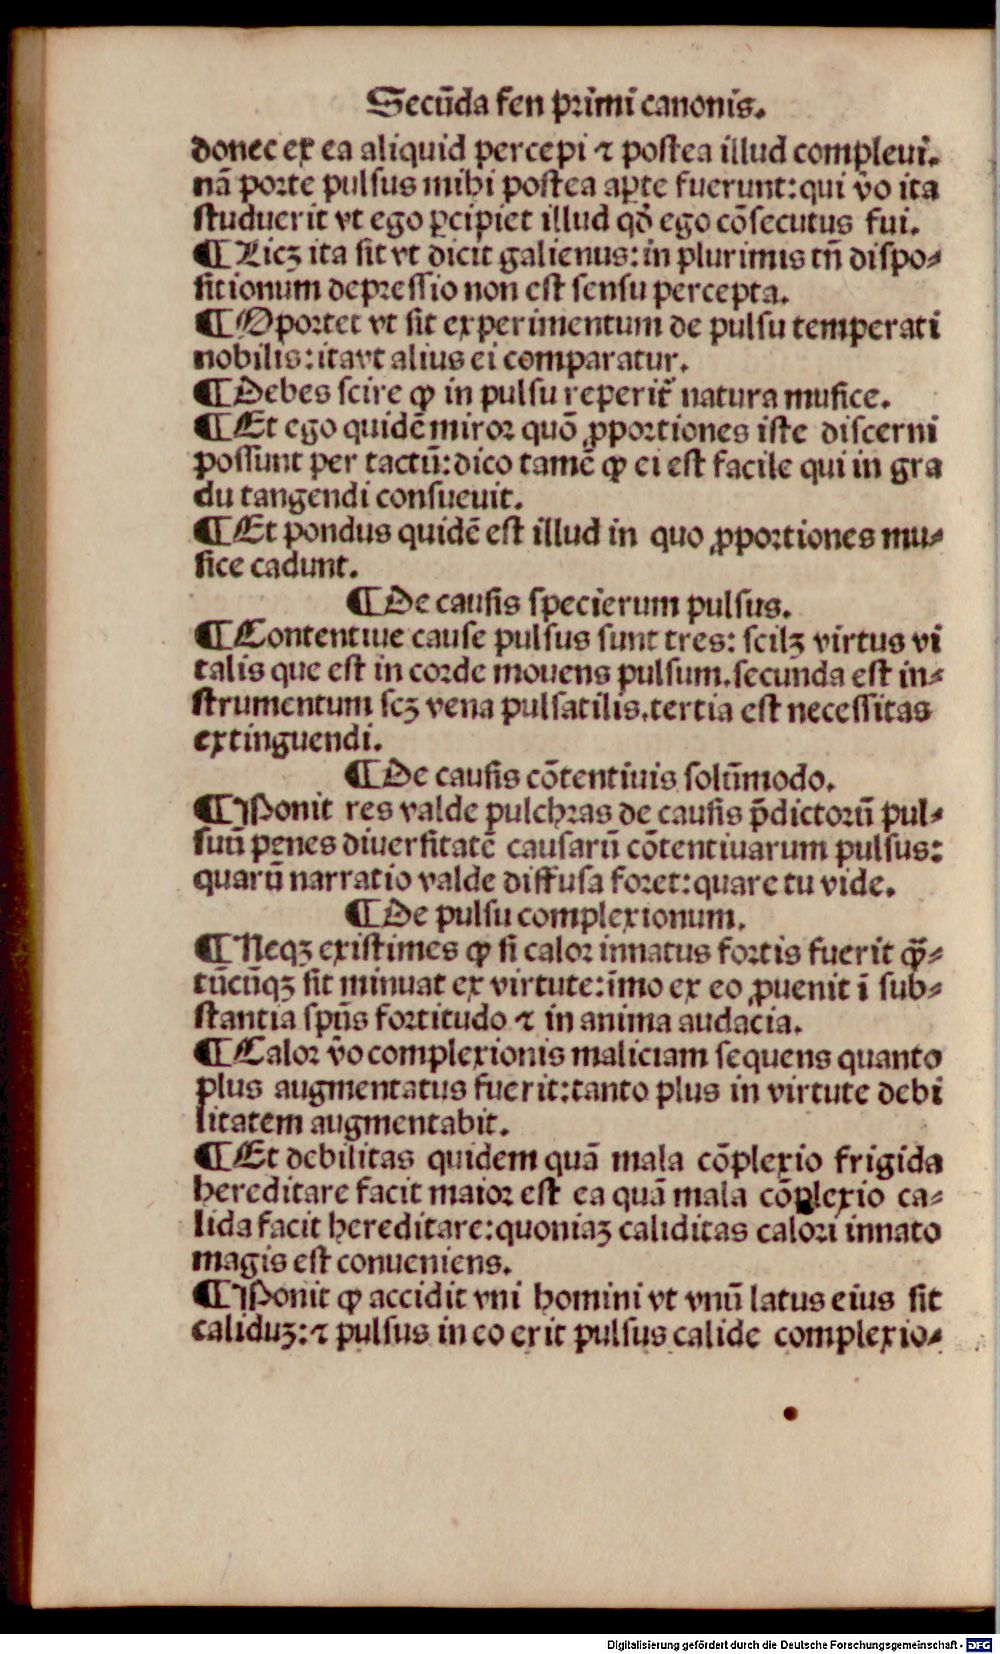 Secūda fen primi canonis.
donec ex ea aliquid percepi ⁊ postea illud compleui.
nā porte pulsus mihi postea aꝑte fuerunt: qui v̄o ita
studuerit vt ego ꝑcipiet illud qđ ego cōsecutus fui.
¶ Licꝫ ita sit vt dicit galienus: in plurimis tn̄ dispo⸗
sitionum depressio non est sensu percepta.
¶ Oportet vt sit experimentum de pulsu temperati
nobilis: itavt alius ei comparatur.
¶ Debes scire ꝙ in pulsu reperit᷑ natura musice.
¶ Et ego quidē miror quō ꝓportiones iste discerni
possunt per tactū: dico tamē ꝙ ei est facile qui in gra
du tangendi consueuit.
¶ Et pondus quidē est illud in quo ꝓportiones mu⸗
sice cadunt.
¶ De causis specierum pulsus.
¶ Contentiue cause pulsus sunt tres: scilꝫ virtus vi
talis que est in corde mouens pulsum. secunda est in⸗
strumentum scꝫ vena pulsatilis. tertia est necessitas
extinguendi.
¶ De causis cōtentiuis solūmodo.
¶ Ponit res valde pulchras de causis p̄dictorū pul⸗
suū penes diuersitatē causarū cōtentiuarum pulsus:
quarū narratio valde diffusa foret: quare tu vide.
¶ De pulsu complexionum.
¶ Neqꝫ existimes ꝙ si calor innatus fortis fuerit ꝙ̄⸗
tūcūqꝫ sit minuat ex virtute: īmo ex eo ꝓuenit ī sub⸗
stantia spūs fortitudo ⁊ in anima audacia.
¶ Calor v̄o complexionis maliciam sequens quanto
plus augmentatus fuerit: tanto plus in virtute debi
litatem augmentabit.
¶ Et debilitas quidem quā mala cōplexio frigida
hereditare facit maior est ea quā mala cōplexio ca⸗
lida facit hereditare: quoniaꝫ caliditas calori innato
magis est conueniens.
¶ Ponit ꝙ accidit vni homini vt vnū latus eius sit
caliduꝫ: ⁊ pulsus in eo erit pulsus calide complexio⸗
Digitalisierung gefördert durch die Deutsche Forschungsgemeinschaft - DFG